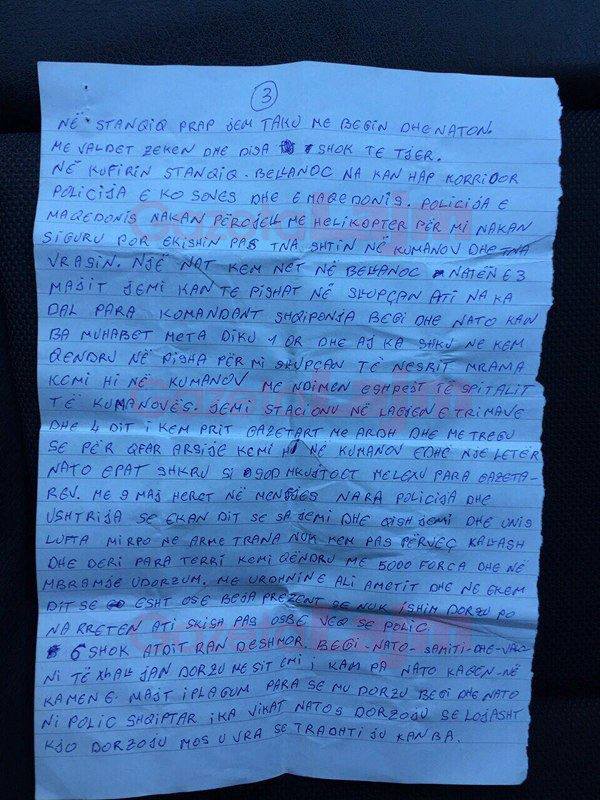 3
NË STANQIQ PRAP JEM TAKU ME BEGIN DHE NATON.
ME VALDET ZEKEN DHE DISA SHOK TE TJER.
NË KUFIRIN STANQIQ - BELLANOC NA KAN HAP KORRIDOR
POLICIJA E KOSOVES DHE E MAQEDONIS. POLICIJA E
MAQEDONIS NAKAN PËRCJELL ME HELIKOPTER PËR MI NAKAN
SIGURU POR EKISHIN PAS TNA SHTIN NË KUMANOV DHE TNA
VRASIN. NJË NAT KEM NET NË BELLANOC NATËN E 3
MAJIT JEMI KAN TE PISHAT NË SLUPÇAN ATI NA KA
DAL PARA KOMANDANT SHQIPONJA BEGI DHE NATO KAN
BA MUHABET META DIKU 1 OR DHE AJ KA SHKU NE KEM
QENDRU NË PISHA PËR MI SLUPÇAN TË NESRIT MRAMA
KEMI HI NË KUMANOV ME NDIMEN ESHPEJT TE SPITALIT
TË KUMANOVËS. JEMI STACIONU NË LAGJEN E TRIMAVE
DHE 4 DIT I KEM PRIT GAZETART ME ARDH DHE ME TREGU
SE PËR QFAR ARSIJE KEMI HI NË KUMANOV EDHE NJE LETËR
NATO EPAT SHKRU SI 900 MKUJTOET MELEXU PARA GAZETA-
REV. ME 9 MAJ HERET NË MENGJES NARA POLICIJA DHE
USHTRIJA SE EKAN DIT SE SA JEMI DHE QISH JEMI DHE UNIS
LUFTA MIRPO NE ARME TRANA NUK KEM PAS PËRVEÇ KALLASH
DHE DERI PARA TERRI KEMI QËNDRU ME 5000 FORCA DHE NË
MBRAMJE UDORZUM. ME URDHNIN E ALI AMETIT DHE NE EKEM
DIT SE ESHT OSE BEJA PREZENT SE NUK ISHIM DORZU PO
NA RRETEN ATI SKISH PAS OSBE VEQ SE POLIC.
6 SHOK ATDIT RAN DESHMOR. BEGI-NATO-SAMITI-DHE-
NI TË XHALL JAN DORZU ME SIT EMI I KAM PA NATO KA BEN-NË
KAMEN E MAJT I PLAGUM PARA SE MU DORZU BEGI DHE NATO
NI POLIC SHQIPTAR IKA VIKAT NATOS DORZOJU SE LOJASHT
KJO DORZOJU MOS U VRA SE TRADHTI JU KAN BA.